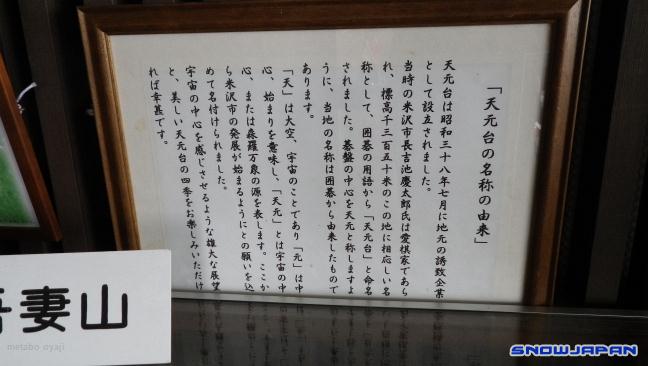 「天元台の名称の由来」
天元台は昭和三十八年七月に地元の誘致企業
として設立されました。
当時の米沢市長吉池慶太郎氏は愛棋家であら
れ、標高千三百五十米のこの地に相応しい名
称として、囲碁の用語から「天元台」と命名
されました。碁盤の中心を天元と称しますよ
うに、当地の名称は囲碁から由来したもので
あります。
「天」は大空、宇宙のことであり「元」は中
心、始まりを意味し、「天元」とは宇宙の中
心、または森羅万象の源を表します。ここか
ら米沢市の発展が始まるようにとの願いを込
めて名付けられました。
宇宙の中心を感じさせるような雄大な展望
と、美しい天元台の四季をお楽しみいただけ
れば幸甚です。
吾妻山
metabo oyaji
SNOWJAPAN